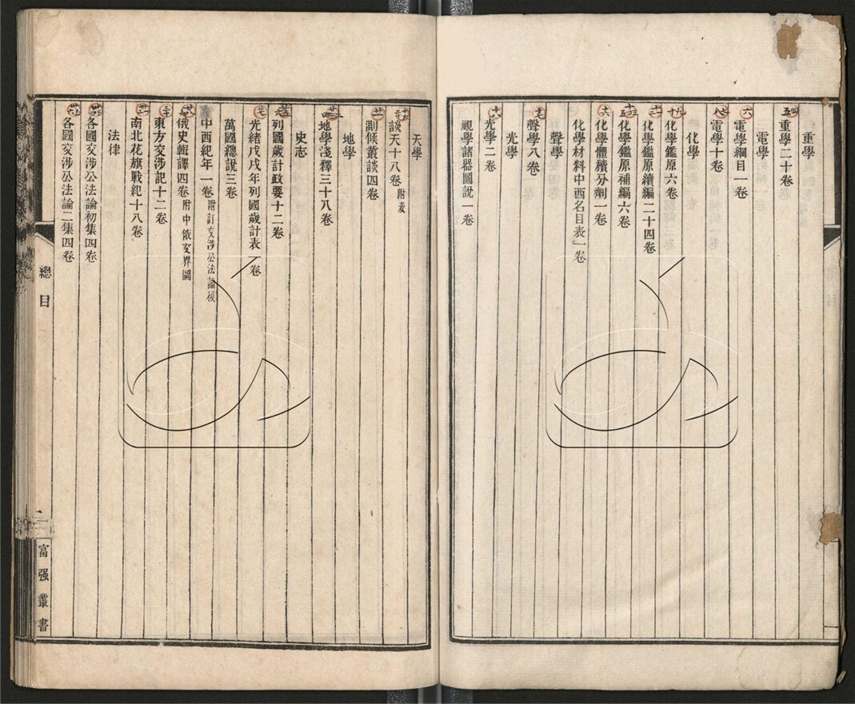 重學
重學二十卷
電學
電學綱目一卷
電學十卷
化學
化學鑑原六卷
化學鑑原續編二十四卷
化學鑑原補編六卷
化學體積分劑一卷
化學材料中西名目表一卷
聲學
聲學八卷
光學
光學二卷
視學諸器圖說一卷
天學
談天十八卷 附表
測候叢談四卷
地學
地學淺釋三十八卷
史志
列國歲計政要十二卷
光緒戊戌年列國歲計表一卷
萬國總說三卷
中西紀年一卷 附訂交涉公法論校
俄史輯譯四卷 附中俄交界圖
東方交涉記十二卷
南北花旗戰紀十八卷
法律
各國交涉公法論初集四卷
各國交涉公法論二集四卷
總目
二
富强叢書